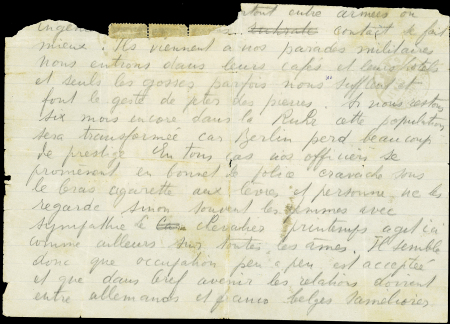 tout entre armées ou
contact se fait
mieux. Ils viennent à nos parades militaires
nous entrons dans leurs cafés et leurs
et seuls les gosses parfois nous sifflent et
font le geste de jeter des pierres. Si nous restons
six mois encore dans la Ruhr cette population
sera transformée car Berlin perd beaucoup
de prestige. En tous cas nos officiers se
promènent en bonnet de police cravache sous
le bras cigarette aux lèvres et personne ne les
regarde sinon souvent les femmes avec
sympathie le chevalier printemps agit ici
comme ailleurs sur toutes les âmes. Il semble
donc que occupation peu à peu est acceptée
et que dans bref avenir les relations doivent
entre allemands et franco belges s'améliorer